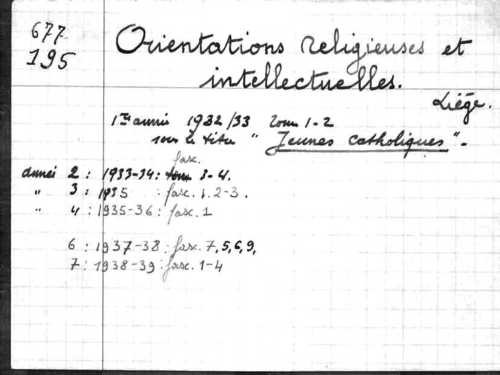 677
195
Orientations religieuses et
intellectuelles.
Liége.
1re année 1932/33 tom 1-2
sous le titre " Jeunes catholiques".
fasc.
année 2 : 1933-34: tom 3-4.
" 3 : 1935 : fasc. 1.2-3.
" 4 : 1935-36 : fasc. 1
6 : 1937-38 : fasc. 7,5,6,9,
7 : 1938-39 : fasc. 1-4